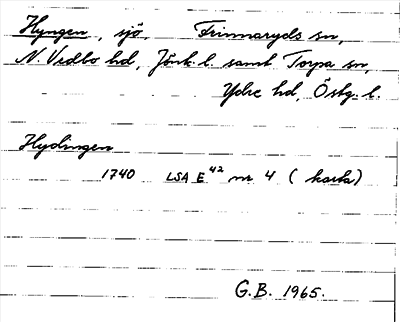 Hyngen, sjö, Frinnaryds sn,
N. Vedbo hd, Jönk. l. samt Torpa sn,
Ydre hd, Östg. l.
Hydingen
1740 LSA E⁴² nr 4 (karta)
G.B. 1965.